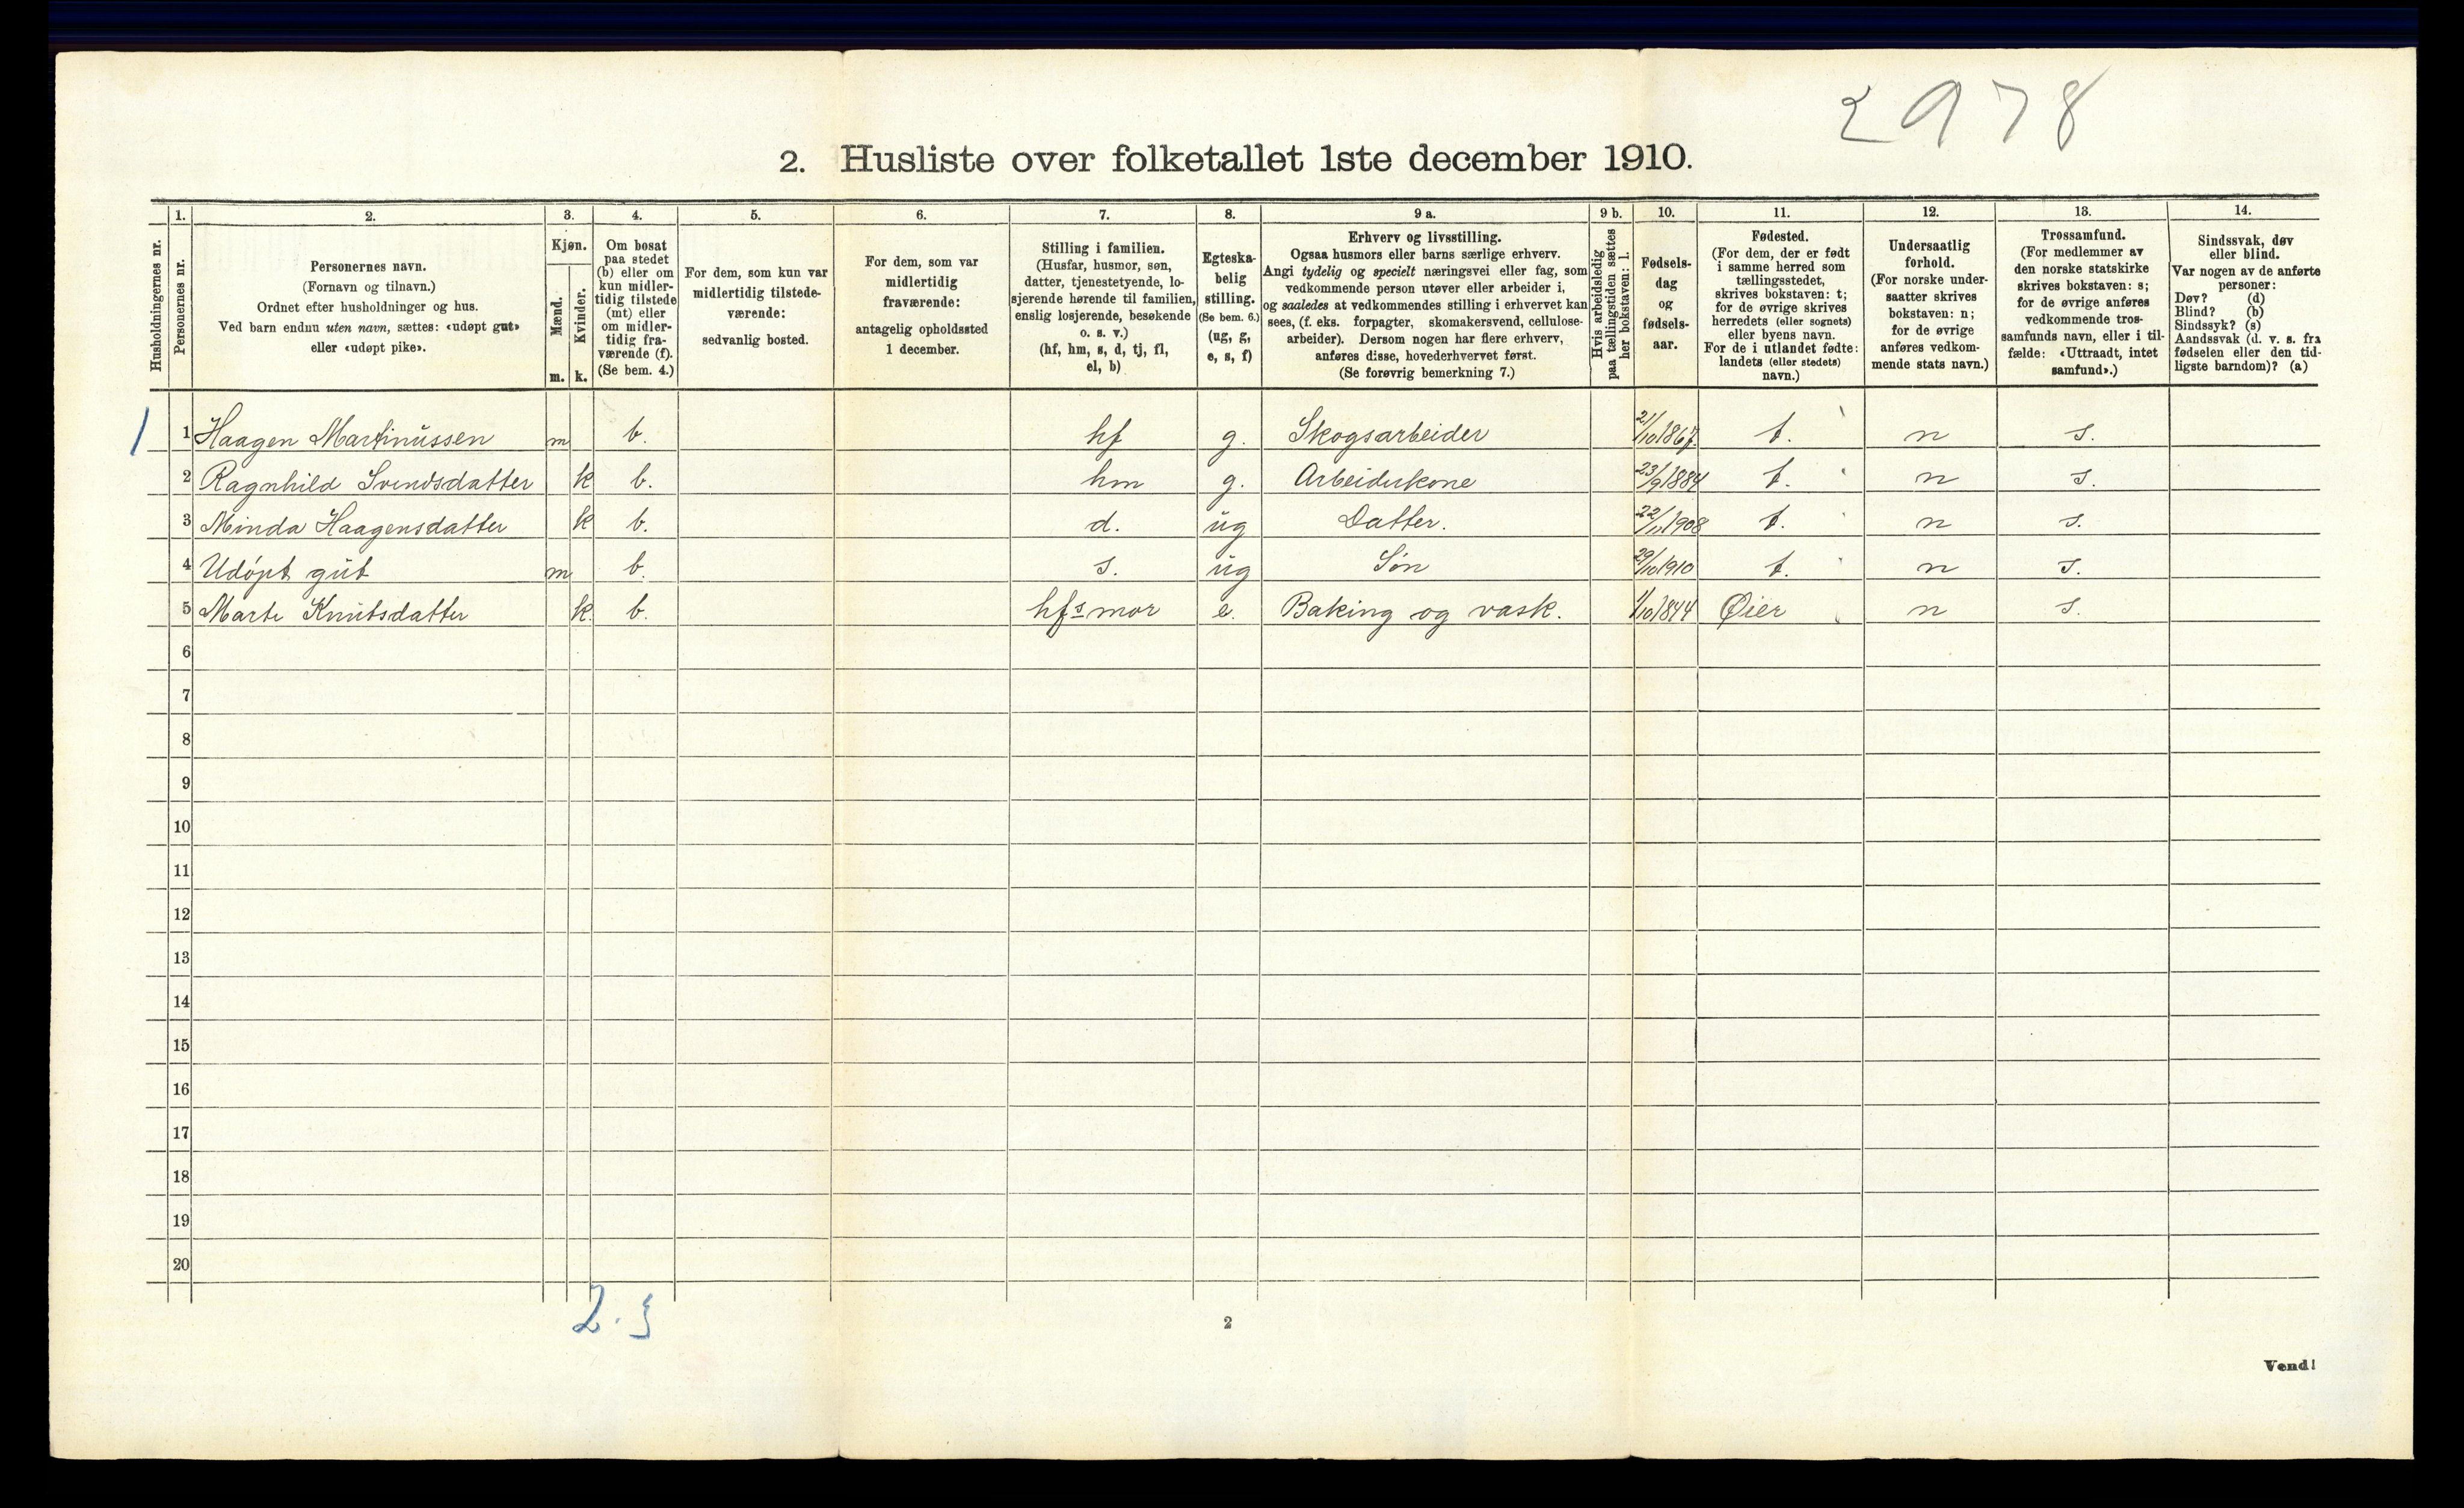 2978
2. Husliste over folketallet 1ste december 1910.
Husholdningernes nr.
1.
Personernes nr.
2.
Personernes navn.
(Fornavn og tilnavn.)
Ordnet efter husholdninger og hus.
Ved barn endnu uten navn, sættes: «udøpt gut»
eller «udøpt pike».
3.
Kjøn.
Mænd.
Kvinder.
m. k.
4.
Om bosat
paa stedet
(b) eller om
kun midler-
tidig tilstede
(mt) eller
om midler-
tidig fra-
værende (f).
(Se bem. 4.)
5.
For dem, som kun var
midlertidig tilstede-
værende:
sedvanlig bosted.
6.
For dem, som var
midlertidig
fraværende:
antagelig opholdssted
1 december.
7.
Stilling i familien.
(Husfar, husmor, søn,
datter, tjenestetyende, lo-
sjerende hørende til familien,
enslig losjerende, besøkende
o. s. v.)
(hf, hm, s, d, tj, fl,
el, b)
8.
Egteska-
belig
stilling.
(Se bem. 6.)
(ug, g,
e, s, f)
9 a.
Erhverv og livsstilling.
Ogsaa husmors eller barns særlige erhverv.
Angi tydelig og specielt næringsvei eller fag, som
vedkommende person utøver eller arbeider i,
og saaledes at vedkommendes stilling i erhvervet kan
sees, (f. eks. forpagter, skomakersvend, cellulose-
arbeider). Dersom nogen har flere erhverv,
anføres disse, hovederhvervet først.
(Se forøvrig bemerkning 7.)
9 b.
Hvis arbeidsledig
paa tællingstiden sættes
her bokstaven: l.
10.
Fødsels-
dag
og
fødsels-
aar.
11.
Fødested.
(For dem, der er født
i samme herred som
tællingsstedet,
skrives bokstaven: t;
for de øvrige skrives
herredets (eller sognets)
eller byens navn.
For de i utlandet fødte:
landets (eller stedets)
navn.)
12.
Undersaatlig
forhold.
(For norske under-
saatter skrives
bokstaven: n;
for de øvrige
anføres vedkom-
mende stats navn.)
13.
Trossamfund.
(For medlemmer av
den norske statskirke
skrives bokstaven: s;
for de øvrige anføres
vedkommende tros-
samfunds navn, eller i til-
fælde: «Uttraadt, intet
samfund».)
14.
Sindssvak, døv
eller blind.
Var nogen av de anførte
personer:
Døv? (d)
Blind? (b)
Sindssyk? (s)
Aandssvak (d. v. s. fra
fødselen eller den tid-
ligste barndom)? (a)
1 1 Haagen Martinussen m b. hf g. Skogsarbeider 21/10 1867. t. n s.
2 Ragnhild Svendsdatter k b. hm g. Arbeiderkone 23/9 1884 t. n s.
3 Minda Haagensdatter k b. d. ug Datter. 22/11 1908 t. n s.
4 Udöpt gut m b. s. ug Søn 29/10 1910 t. n s.
5 Marte Knutsdatter k. b. hfs mor e. Baking og vask. 1/10 1844 Øier n s.
6
7
8
9
10
11
12
13
14
15
16
17
18
19
20
2. 3
2
Vend!